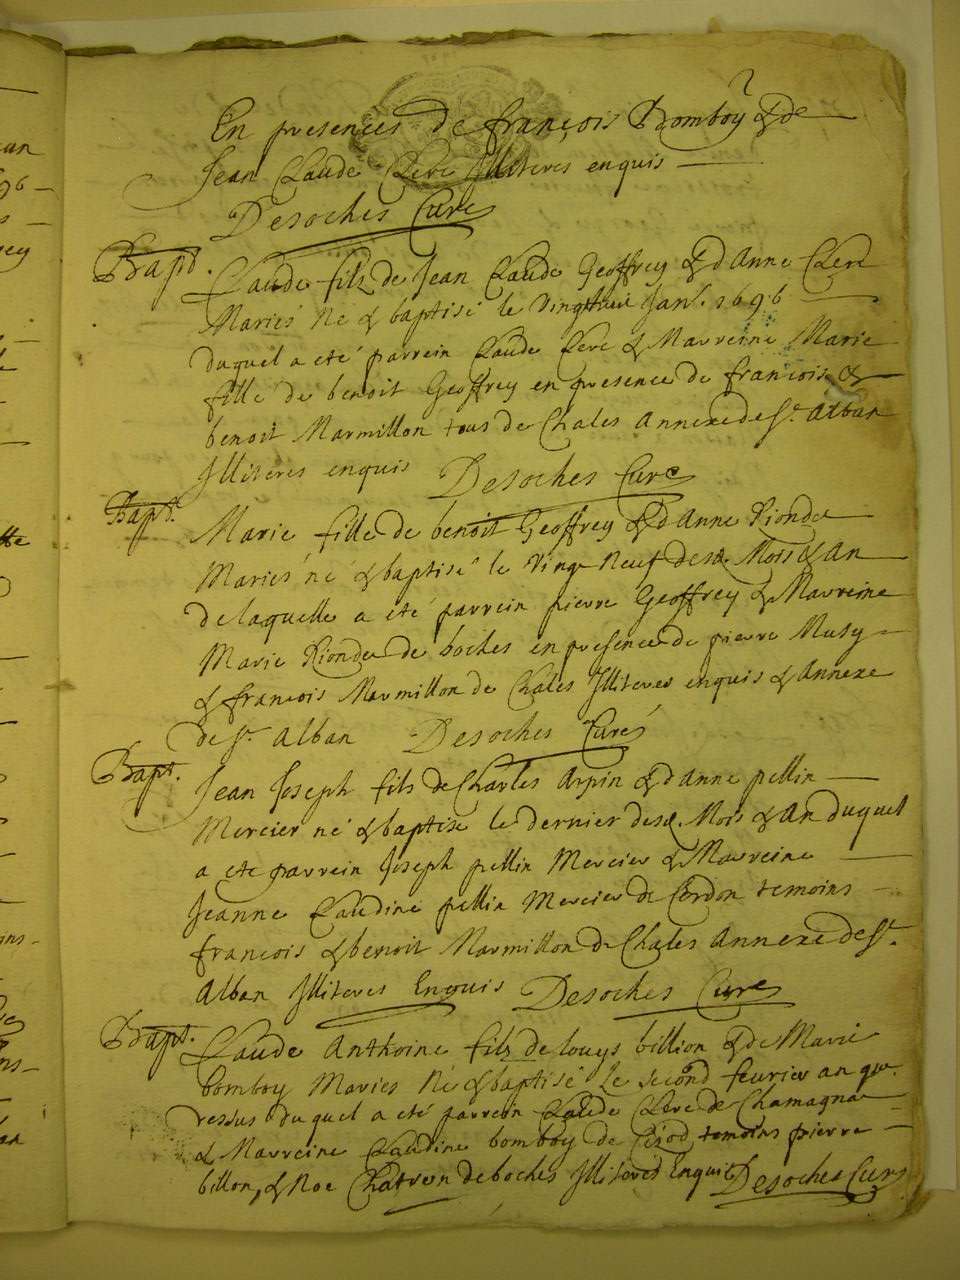 En presences de françois Bomboy & de
Jean Claude Clere Illiteres enquis
Desoches Curé
Bapt.
Claude fils de Jean Claude Geoffrey & d Anne Clere
Mariés né & baptisé le vingthuit Janv. 1696
duquel a eté parrein Claude Clere & Marreine Marie
fille de benoit Geoffrey en presence de francois &
benoit Marmillon tous de Chales Annexe de St. Alban
Illiteres enquis Desoches Curé
Bapt.
Marie fille de benoit Geoffrey & d Anne Rionde
Mariés né & baptisé le vingt Neuf desd. Mois & An
de laquelle a eté parrein pierre Geoffrey & Marreine
Marie Rionde de boches en presence de pierre Musy
& francois Marmillon de Chales Illiteres enquis & Annexe
de St. Alban Desoches Curé
Bapt.
Jean Joseph fils de Charles Arpin & d anne pellin
Mercier né & baptise le dernier desd. Mois & An duquel
a ete parrein Joseph pellin Mercier & Marreine
Jeanne Claudine pellin Mercier de Cordon temoins
francois & benoit Marmillon de Chales Annexe de St.
Alban Illiteres Enquis Desoches Curé
Bapt.
Claude Anthoine fils de louys billion & de Marie
bomboy Mariés Né & baptisé le second feurier an que
dessus duquel a eté parrein Claude Clere de Chamagna
& Marreine Claudine bomboy de temoins pierre
billon, & Noe Chatron de boches Illiteres Enquis Desoches Curé